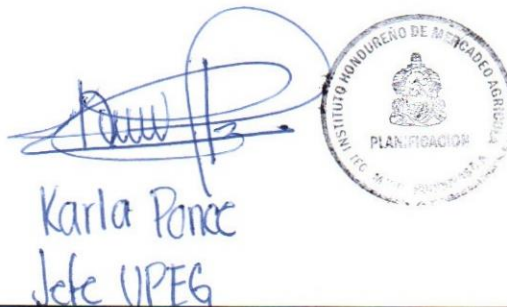 INSTITUTO HONDUREÑO DE MERCADEO AGRICOLA
PLANIFICACION
Karla Ponce
Jefe UPEG